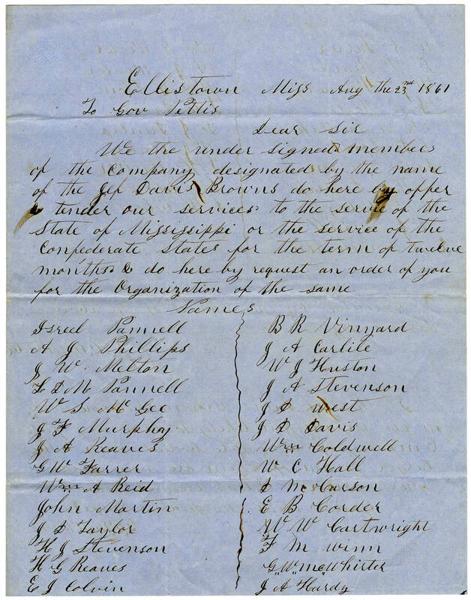 Ellistown Miss Aug the 23rd 1861
To Gov Pettis
Dear Sir
We the under signed members
of the Company designated by the name
of the Jef Davis Browns do here by offer
& tender our services to the service of the
State of Mississippi or the service of the
Confederate States for the term of twelve
months & do here by request an order of you
for the Organization of the same
Names
Isreel Pannell
A J Phillips
J W Melton
W S McGee
J F Murphey
J A Reaves
G W Farrer
Wm A Reid
John Martin
J D Taylor
H J Stevenson
H G Reaves
E J Colvin
B R Vinyard
J A Carlile
W J Huston
J A Stevenson
J D West
J D Davis
Wm Coldwell
W C Hall
D McCarson
E B Corder
W W Cartwright
F M Winn
G W McWhirter
J A Hardy